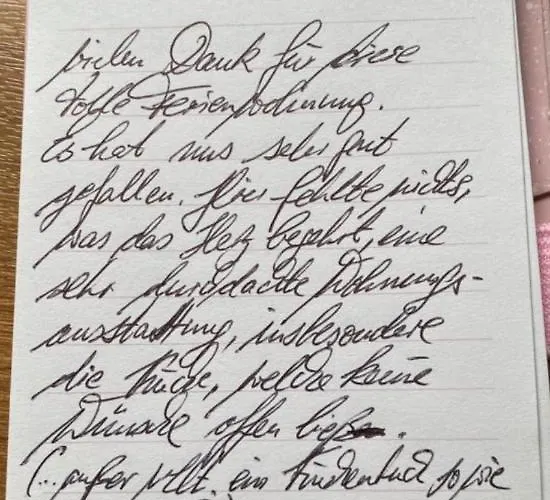 vielen Dank für diese
tolle Ferienwohnung.
Es hat uns sehr gut
gefallen. Hier fehlte nichts,
was das Herz begehrt, eine
sehr durchdachte Wohnungs-
ausstattung, insbesondere
die Küche, welche keine
Wünsche offen ließ.
(... außer vllt. ein Küchentuch, so wie